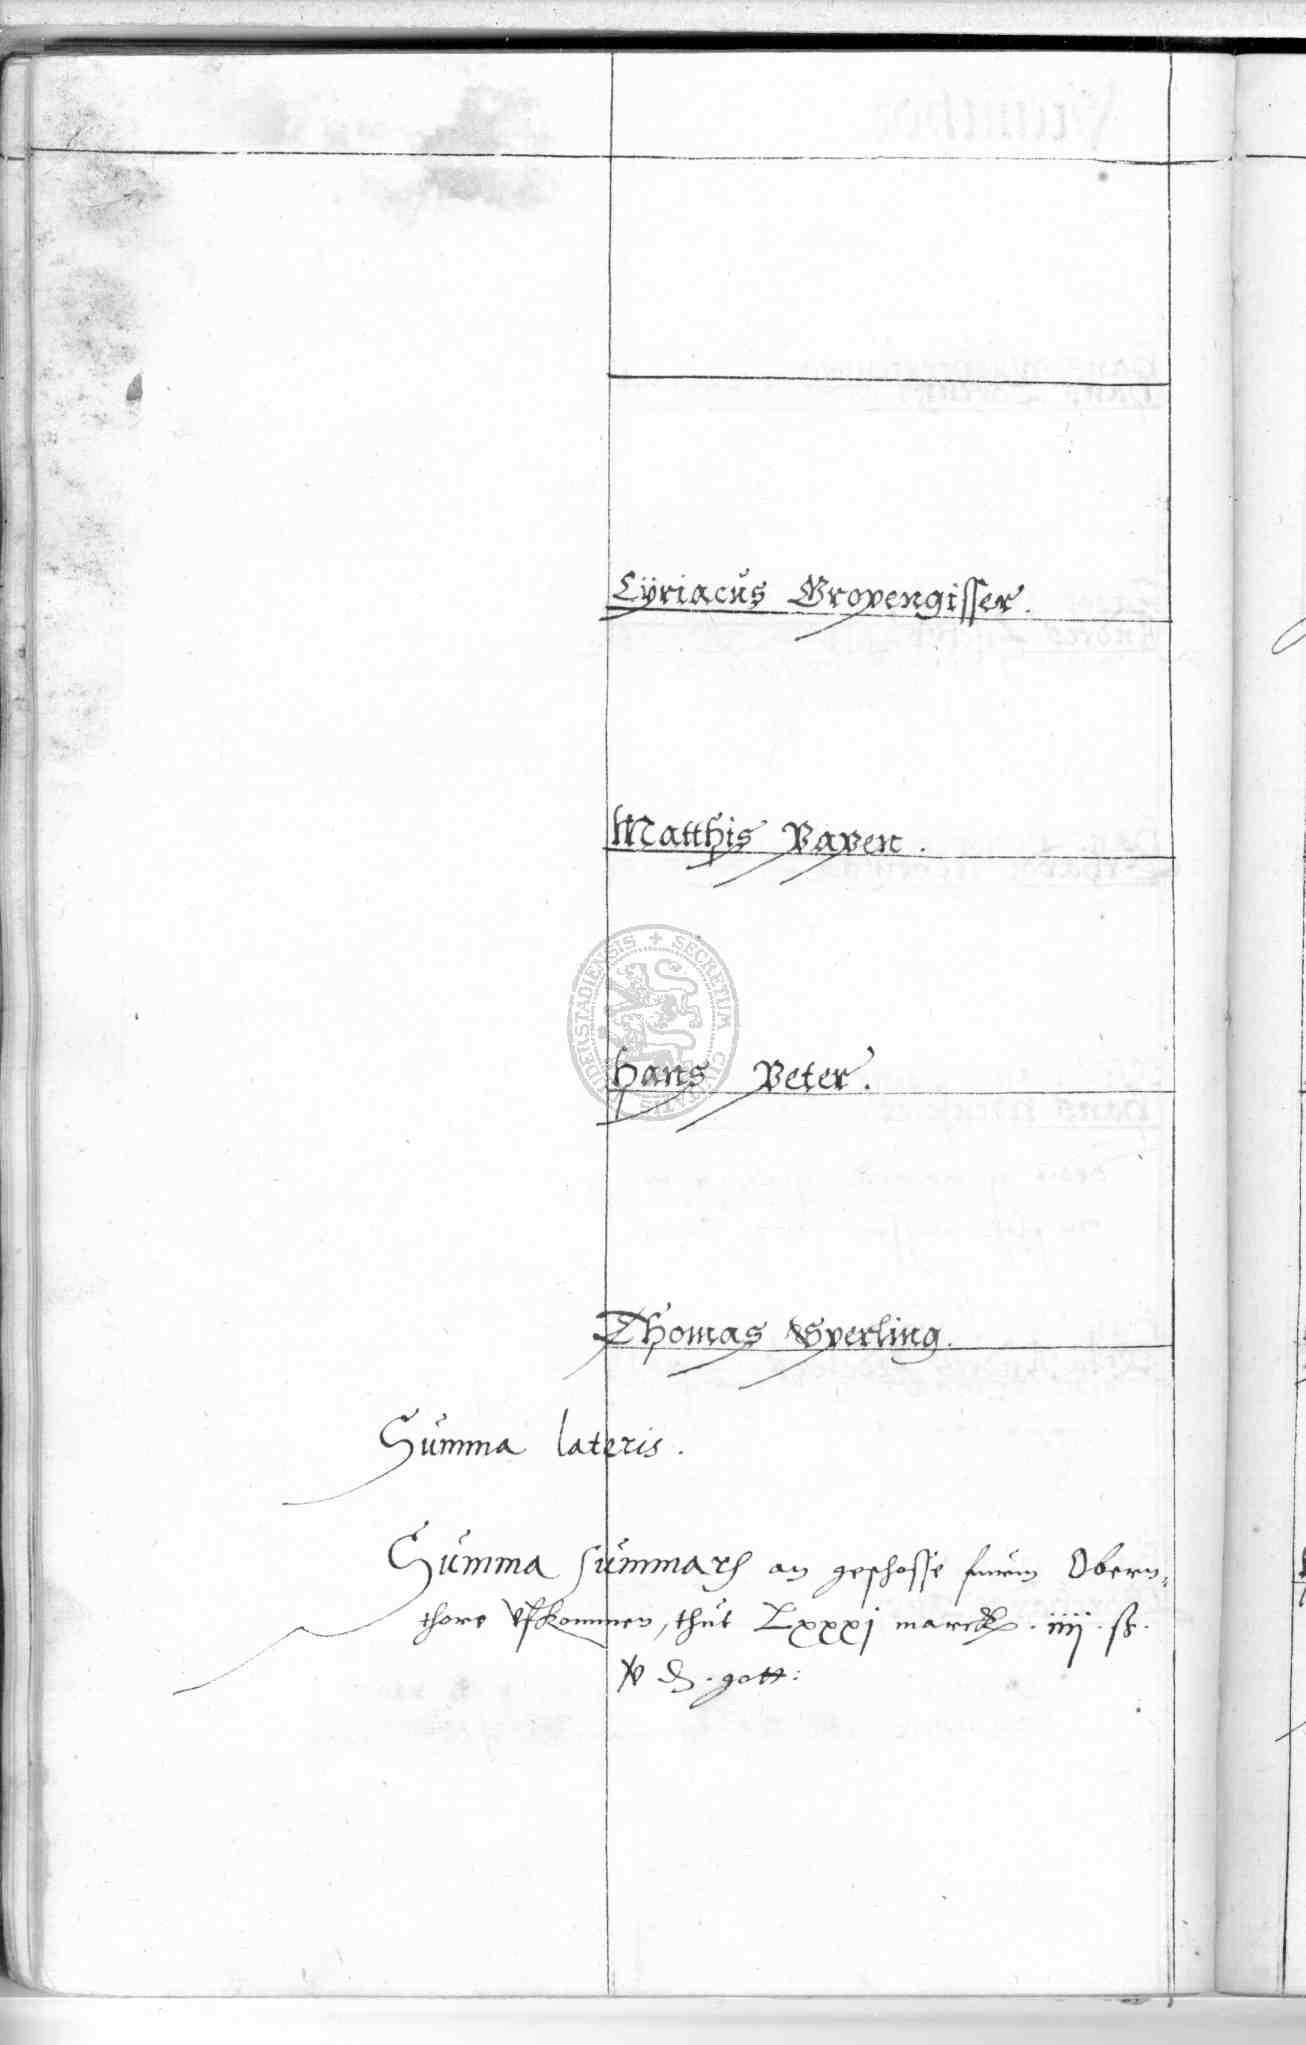 Cÿriacus Gropengisser.
Matthis Papen.
Hans Peter.
Thomas Sperling.
Summa lateris.
Summa summarum an geschosse fuurm Obern-
thore vfkommen, thut Lxxxj marck. iiij. ß.
v ₰. gott:
SECRETUM CIVITATIS DUDERSTADIENSIS